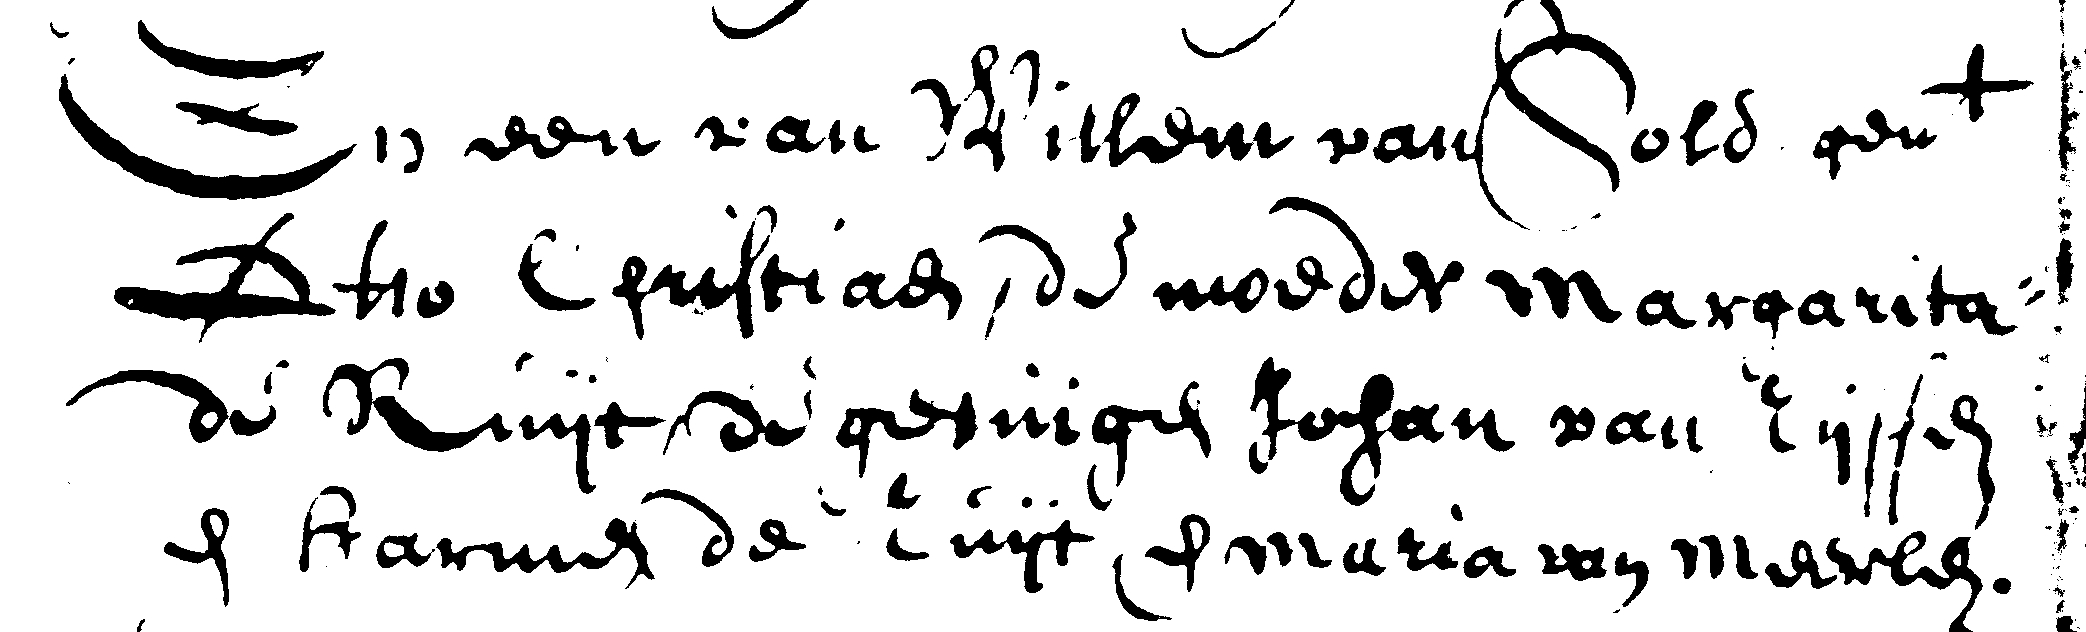 En een van Willem van Sold gen
Otto Cristiaen, de moeder Margarita
de Ruijt, de getuigen Johan van Tijssen
en Harmen de Cuijt en Maria van Merlen.